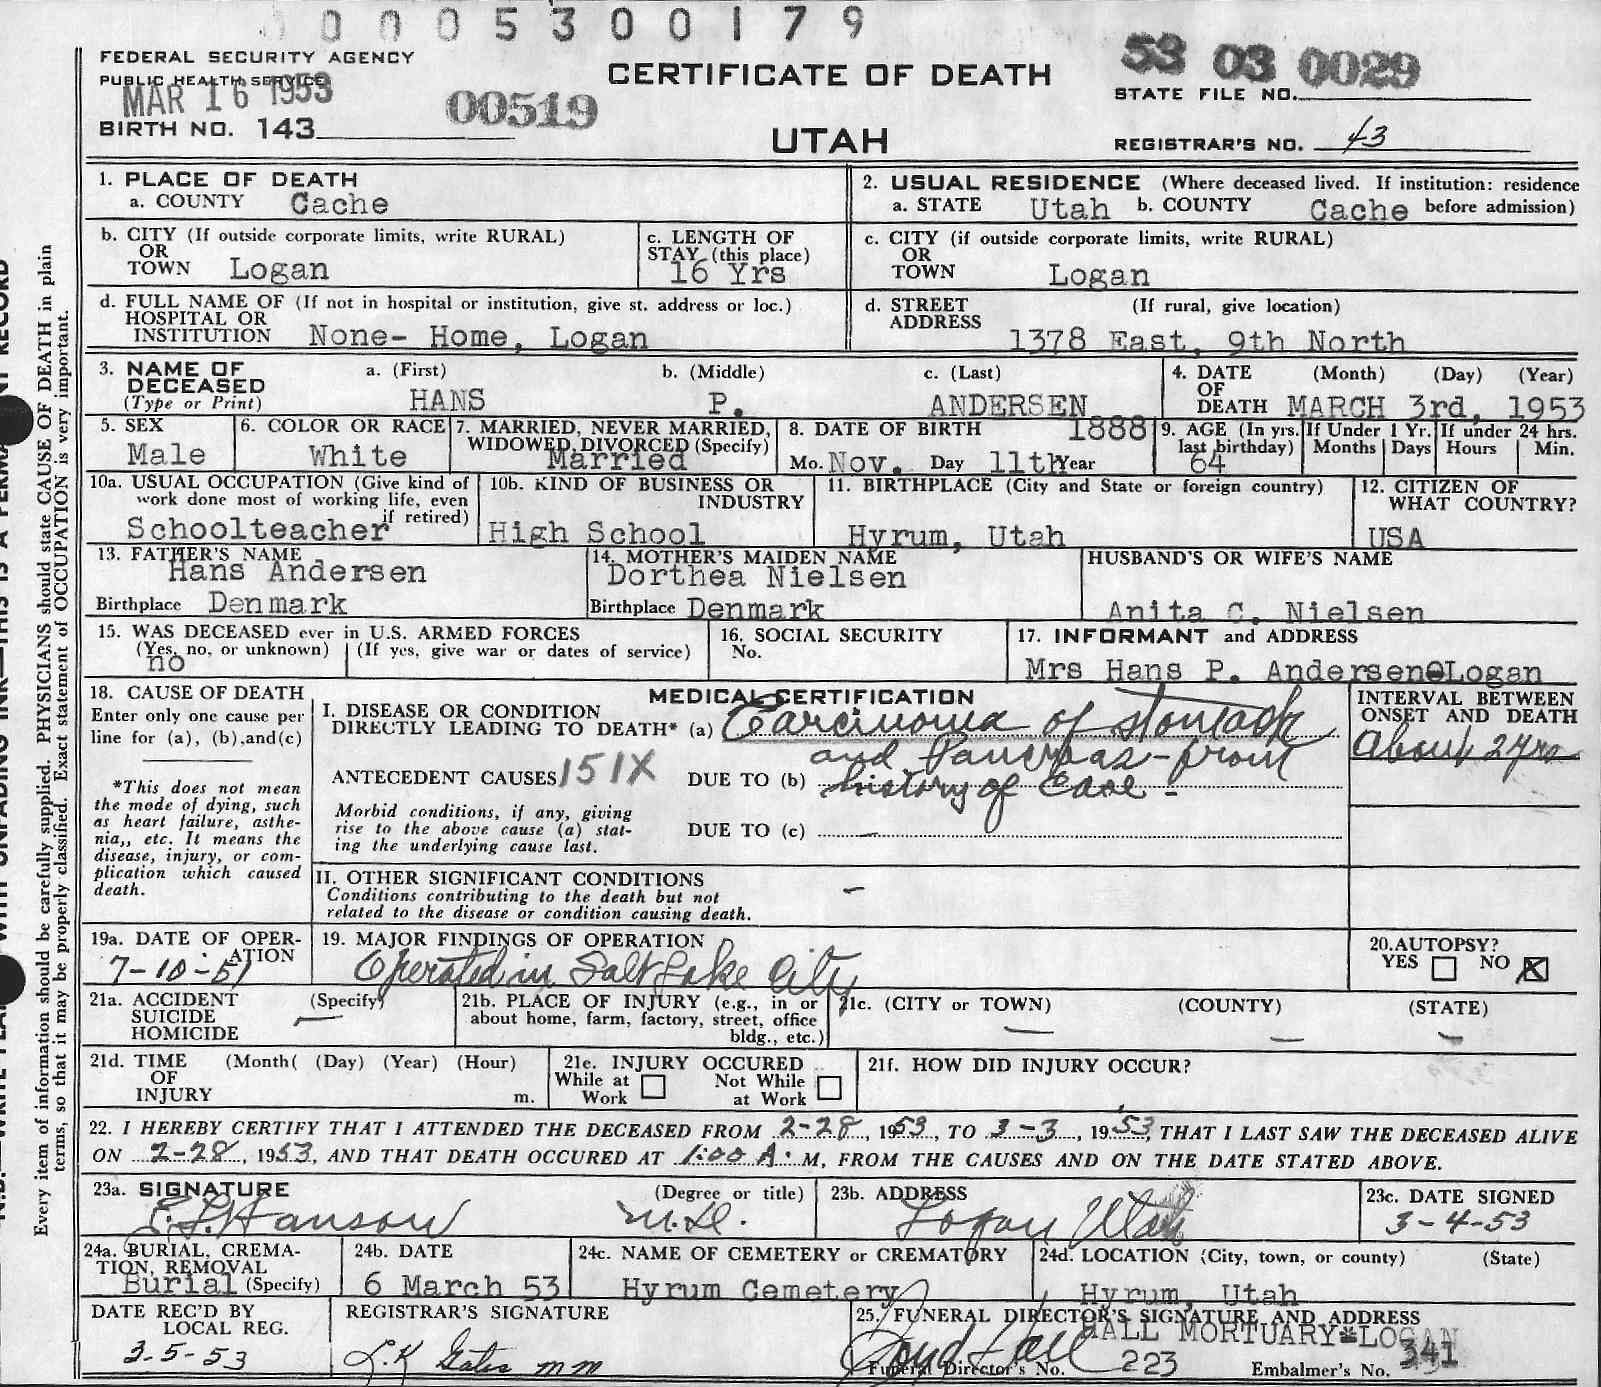 0 0 0 5 3 0 0 1 7 9
FEDERAL SECURITY AGENCY
PUBLIC HEALTH SERVICE
MAR 16 1953
00519
BIRTH NO. 143
CERTIFICATE OF DEATH
UTAH
53 03 0029
STATE FILE NO.
REGISTRAR'S NO. 43
1. PLACE OF DEATH
a. COUNTY Cache
2. USUAL RESIDENCE (Where deceased lived. If institution: residence
a. STATE Utah b. COUNTY Cache before admission)
b. CITY (If outside corporate limits, write RURAL)
OR
TOWN Logan
c. LENGTH OF
STAY (this place)
16 Yrs
c. CITY (if outside corporate limits, write RURAL)
OR
TOWN Logan
d. FULL NAME OF (If not in hospital or institution, give st. address or loc.)
HOSPITAL OR
INSTITUTION None- Home, Logan
d. STREET (If rural, give location)
ADDRESS
1378 East, 9th North
3. NAME OF
DECEASED
(Type or Print)
a. (First)
HANS
b. (Middle)
P.
c. (Last)
ANDERSEN
4. DATE (Month) (Day) (Year)
OF
DEATH MARCH 3rd, 1953
5. SEX
Male
6. COLOR OR RACE
White
7. MARRIED, NEVER MARRIED,
WIDOWED, DIVORCED (Specify)
Married
8. DATE OF BIRTH 1888
Mo. Nov. Day 11th Year
9. AGE (In yrs.
last birthday)
64
If Under 1 Yr.
Months Days
If under 24 hrs.
Hours Min.
10a. USUAL OCCUPATION (Give kind of
work done most of working life, even
if retired)
Schoolteacher
10b. KIND OF BUSINESS OR
INDUSTRY
High School
11. BIRTHPLACE (City and State or foreign country)
Hyrum, Utah
12. CITIZEN OF
WHAT COUNTRY?
USA
13. FATHER'S NAME
Hans Andersen
Birthplace Denmark
14. MOTHER'S MAIDEN NAME
Dorthea Nielsen
Birthplace Denmark
HUSBAND'S OR WIFE'S NAME
Anita C. Nielsen
15. WAS DECEASED ever in U.S. ARMED FORCES
(Yes, no, or unknown) (If yes, give war or dates of service)
no
16. SOCIAL SECURITY
No.
17. INFORMANT and ADDRESS
Mrs Hans P. Andersen Logan
18. CAUSE OF DEATH
Enter only one cause per
line for (a), (b),and(c)
*This does not mean
the mode of dying, such
as heart failure, asthe-
nia,, etc. It means the
disease, injury, or com-
plication which caused
death.
MEDICAL CERTIFICATION
I. DISEASE OR CONDITION
DIRECTLY LEADING TO DEATH* (a) Carcinoma of stomach
and Pancreas - from
ANTECEDENT CAUSES 151X DUE TO (b) history of case -
Morbid conditions, if any, giving
rise to the above cause (a) stat-
ing the underlying cause last.
DUE TO (c) -
INTERVAL BETWEEN
ONSET AND DEATH
About 2 yrs
II. OTHER SIGNIFICANT CONDITIONS
Conditions contributing to the death but not
related to the disease or condition causing death.
-
19a. DATE OF OPER-
ATION
7-10-51
19. MAJOR FINDINGS OF OPERATION
Operated in Salt Lake City
20. AUTOPSY?
YES NO X
21a. ACCIDENT (Specify)
SUICIDE
HOMICIDE
21b. PLACE OF INJURY (e.g., in or
about home, farm, factory, street, office
bldg., etc.)
21c. (CITY or TOWN) (COUNTY) (STATE)
21d. TIME (Month( (Day) (Year) (Hour)
OF
INJURY m.
21e. INJURY OCCURED
While at Not While
Work at Work
21f. HOW DID INJURY OCCUR?
22. I HEREBY CERTIFY THAT I ATTENDED THE DECEASED FROM 2-28, 1953, TO 3-3, 1953, THAT I LAST SAW THE DECEASED ALIVE
ON 2-28, 1953, AND THAT DEATH OCCURED AT 1:00 A. M, FROM THE CAUSES AND ON THE DATE STATED ABOVE.
23a. SIGNATURE (Degree or title)
Hanson M.D.
23b. ADDRESS
Logan Utah
23c. DATE SIGNED
3-4-53
24a. BURIAL, CREMA-
TION, REMOVAL
Burial (Specify)
24b. DATE
6 March 53
24c. NAME OF CEMETERY or CREMATORY
Hyrum Cemetery
24d. LOCATION (City, town, or county) (State)
Hyrum, Utah
DATE REC'D BY
LOCAL REG.
3-5-53
REGISTRAR'S SIGNATURE
25. FUNERAL DIRECTOR'S SIGNATURE AND ADDRESS
HALL MORTUARY-LOGAN
Funeral Director's No. 223 Embalmer's No. 341
Every item of information should be carefully supplied. PHYSICIANS should state CAUSE OF DEATH in plain
terms, so that it may be properly classified. Exact statement of OCCUPATION is very important.